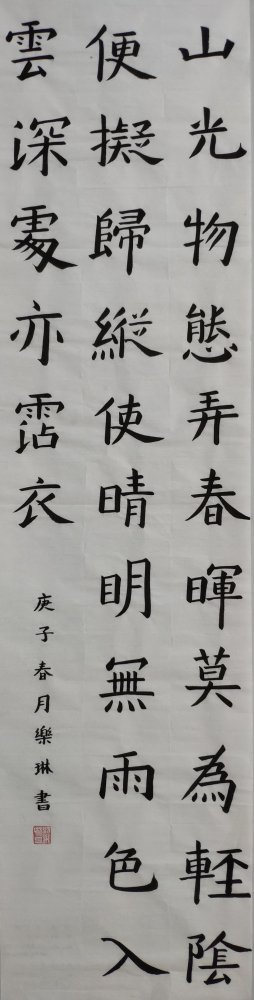 山光物態弄春暉莫為輕陰
便擬歸縱使晴明無雨色入
雲深處亦霑衣
庚子春月樂琳書